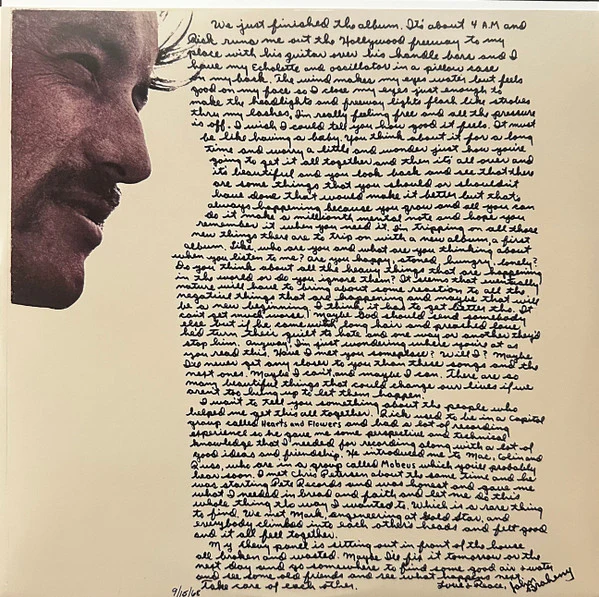 We just finished the album. It's about 4 A.M and
Rick runs me out the Hollywood freeway to my
place with his guitar over his handle bars and I
have my Echolette and oscillator in a pillow case
on my back. The wind makes my eyes water but feels
good on my face so I close my eyes just enough to
make the headlights and freeway lights flash like strobes
thru my lashes, I'm really feeling free and all the pressure
is off. I wish I could tell you how good it feels. It must
be like having a baby. You think about it for a long
time and worry a little and wonder just how you're
going to get it all together and then it's all over and
it's beautiful and you look back and see that there
are some things that you should or shouldn't
have done that would make it better but that's
always happening because you grow and all you can
do it make a millionth mental note and hope you
remember it when you need it. I'm tripping on all those
new things there are to trip on with a new album, a first
album. Like, who are you and what are you thinking about
when you listen to me? are you happy, stoned, hungry, lonely?
Do you think about all the heavy things that are happening
in the world or do you ignore them? It seems that eventually
nature will have to bring about some reaction to all the
negative things that are happening and maybe that will
be a new beginning. I think it has to get better tho. It
can't get much worse! Maybe God should send somebody
else but if he came with long hair and preached love
he'd turn their guilt to hate and one way or another they'd
stop him. Anyway, I'm just wondering where you're at as
you read this. Have I met you someplace? Will I? Maybe
I've never get any closer to you than these songs and the
next ones. Maybe I can't and maybe I can. There are so
many beautiful things that could change our lives if we
aren't too hung up to let them happen.
I want to tell you something about the people who
helped me get this all together. Rick used to be in a Capitol
group called Hearts and Flowers and had a lot of recording
experience so he gave me some perspective and technical
knowledge that I needed for recording along with a lot of
good ideas and friendship. He introduced me to Mac, Colin and
Russ, who are in a group called Mobeus which you'll probably
hear soon. I met Chris Peterson about the same time and he
was starting Pete Records and was honest and gave me
what I needed in bread and faith and let me do this
whole thing the way I wanted to. Which is a rare thing
to find. We met Mark, engineering at Gold Star, and
everybody climbed into each other's heads and felt good
and it all fell together.
My Chevy panel is sitting out in front of the house
all broken and wasted. Maybe I'll fix it tomorrow or the
next day and go somewhere to find some good air & water
and see some old friends and see what happens next.
Take care of each other.
Love & Peace,
John Braheny
9/15/68